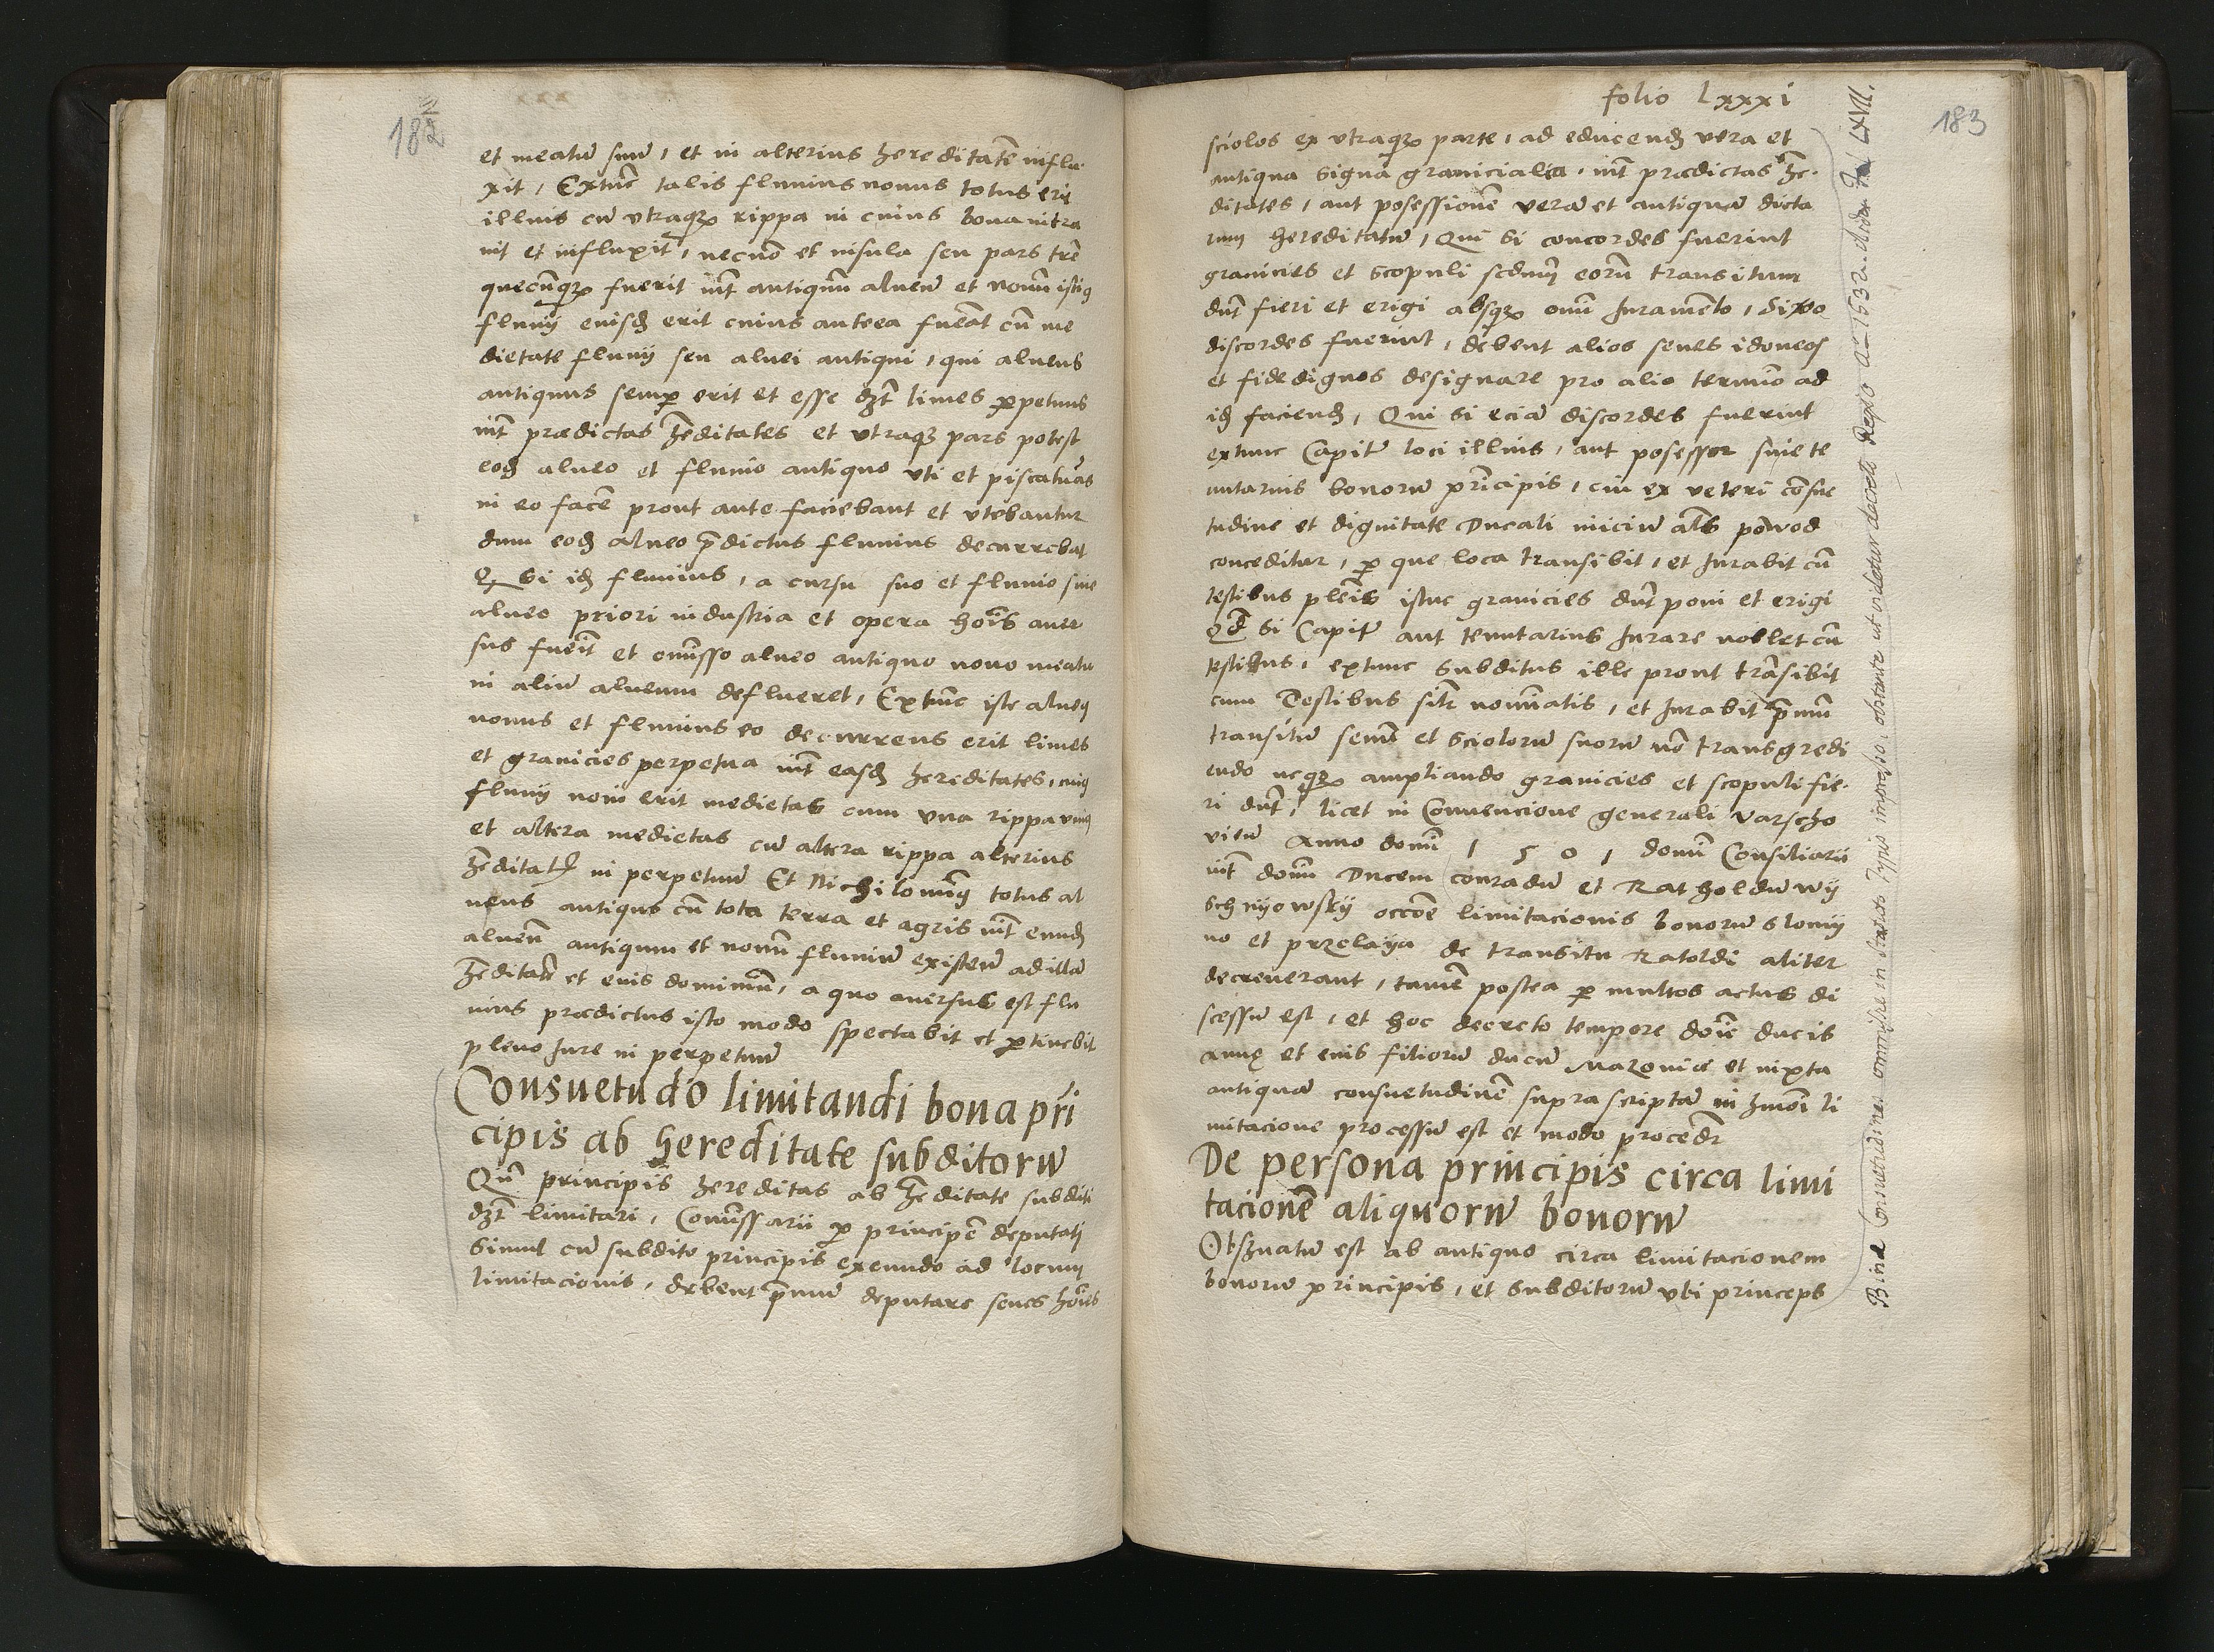 182
et meatū suū, et in alterius hereditatē influ
xit, Extūc talis fluuius nouus totus erit
illius cū vtraqȝ rippa in cuius bona intra
uit et influxit, necnō et insula seu pars trē
quecūqȝ fuerit int̄ antiquū alueū et nouū istiꝰ
fluuij eiusd erit cuius antea fuēat cū me
dietate fluuij seu aluei antiqui, qui alueus
antiquus semꝑ erit et esse dȝt limes ꝑpetuus
int̄ prædictas h̄editates et vtraqȝ pars potest
eod alueo et fluuio antiquo vti et piscatūas
in eo facē prout ante faciebant et vtebantur
dum eod alueo p̄dictus fluuius decurrebat
Qȝ si id fluuius, a cursu suo et fluuio siue
alueo priori industria et opera hoīs auer
sus fuēit et omīsso alueo antiquo nouo meatu
in aliū alueum deflueret, Extūc iste alueꝰ
nouus et fluuius eo decurrens erit limes
et granicies perpetua int̄ easd hereditates, cuiꝰ
fluuij noui erit medietas cum vna rippa vniꝰ
et altera medietas cū altera rippa alterius
h̄editatꝭ in perpetuū Et Nichilomīꝰ totus al
ueus antiqus cū tota terra et agris int̄ eund
alueū antiquum et nouū fluuiū existeñ ad illā
h̄editatē et eius dominiū, a quo auersus est flu
uius prædictus isto modo spectabit et ꝑtinebit
pleno Jure in perpetuū
Consuetudo limitandi bona pri
cipis ab hereditate subditorū
Qn̄ principis hereditas ab h̄editate subditi
dȝt limitari, Comīssarii ꝑ principē deputati
simul cū subdito principis exeundo ad locum
limitacionis, debent p̄mum deputare senes hoīes
folio Lxxxi
183
sciolos ex vtraqȝ parte, ad educend vera et
antiqua signa granicialia, int̄ prædictas he-
ditates, aut posessionē verā et antiquā dicta
rum hereditatū, Qui si concordes fuerint
granicies et scopuli scdum eorū transitum
dn̄t fieri et erigi absqȝ omī Juramēto, Si vo
discordes fuerint, debent alios senes idoneos
et fide dignos designare pro alio termīo ad
id faciend, Qui si eciā discordes fuerint
extunc Capit̄ loci illius, aut posessor siue te
nutarius bonorū principis, cui ex veteri cōsue
tudine et dignitate Ducali iniciū als powod
conceditur, ꝑ que loca transibit, et Jurabit cū
testibus plenis istuc granicies dn̄t poni et erigi
Qd si Capit̄ aut tenutarius Jurare nollet cū
testibus, extunc subditus ille prout trāsibit
cum Testibus silr nomīatis, et Jurabit p̄mum
transitū senū et sciolorū suorū nō transgredi
endo neqȝ ampliando granicies et scopuli fie-
ri dn̄t, licet in Conuencione generali Varscho
vien̄ Anno domī 1501 domī Consiliarii
int̄ domī Ducem Conradū et Ratholdū wy
schnyowsky occōe limitacionis bonorū slomy
no et przelaya de transitu Ratoldi aliter
decreuerant, tamē postea ꝑ multos actus di
scessū est, et hoc decreto tempore doīe ducis
Annę et eius filiorū ducū Mazouiæ et iuxta
antiquā consuetudinē suprascriptā in hmōi li
mitacione processū est et modo procedr̄
De persona principis circa limi
tacionē aliquorū bonorū
Obseruatū est ab antiquo circa limitacionem
bonorū principis, et subditorū vbi princeps
Binæ Consuetudines omissæ in statuto Typis impresso, obstante ut videtur decreto Regio Aō 1532. LXVII.